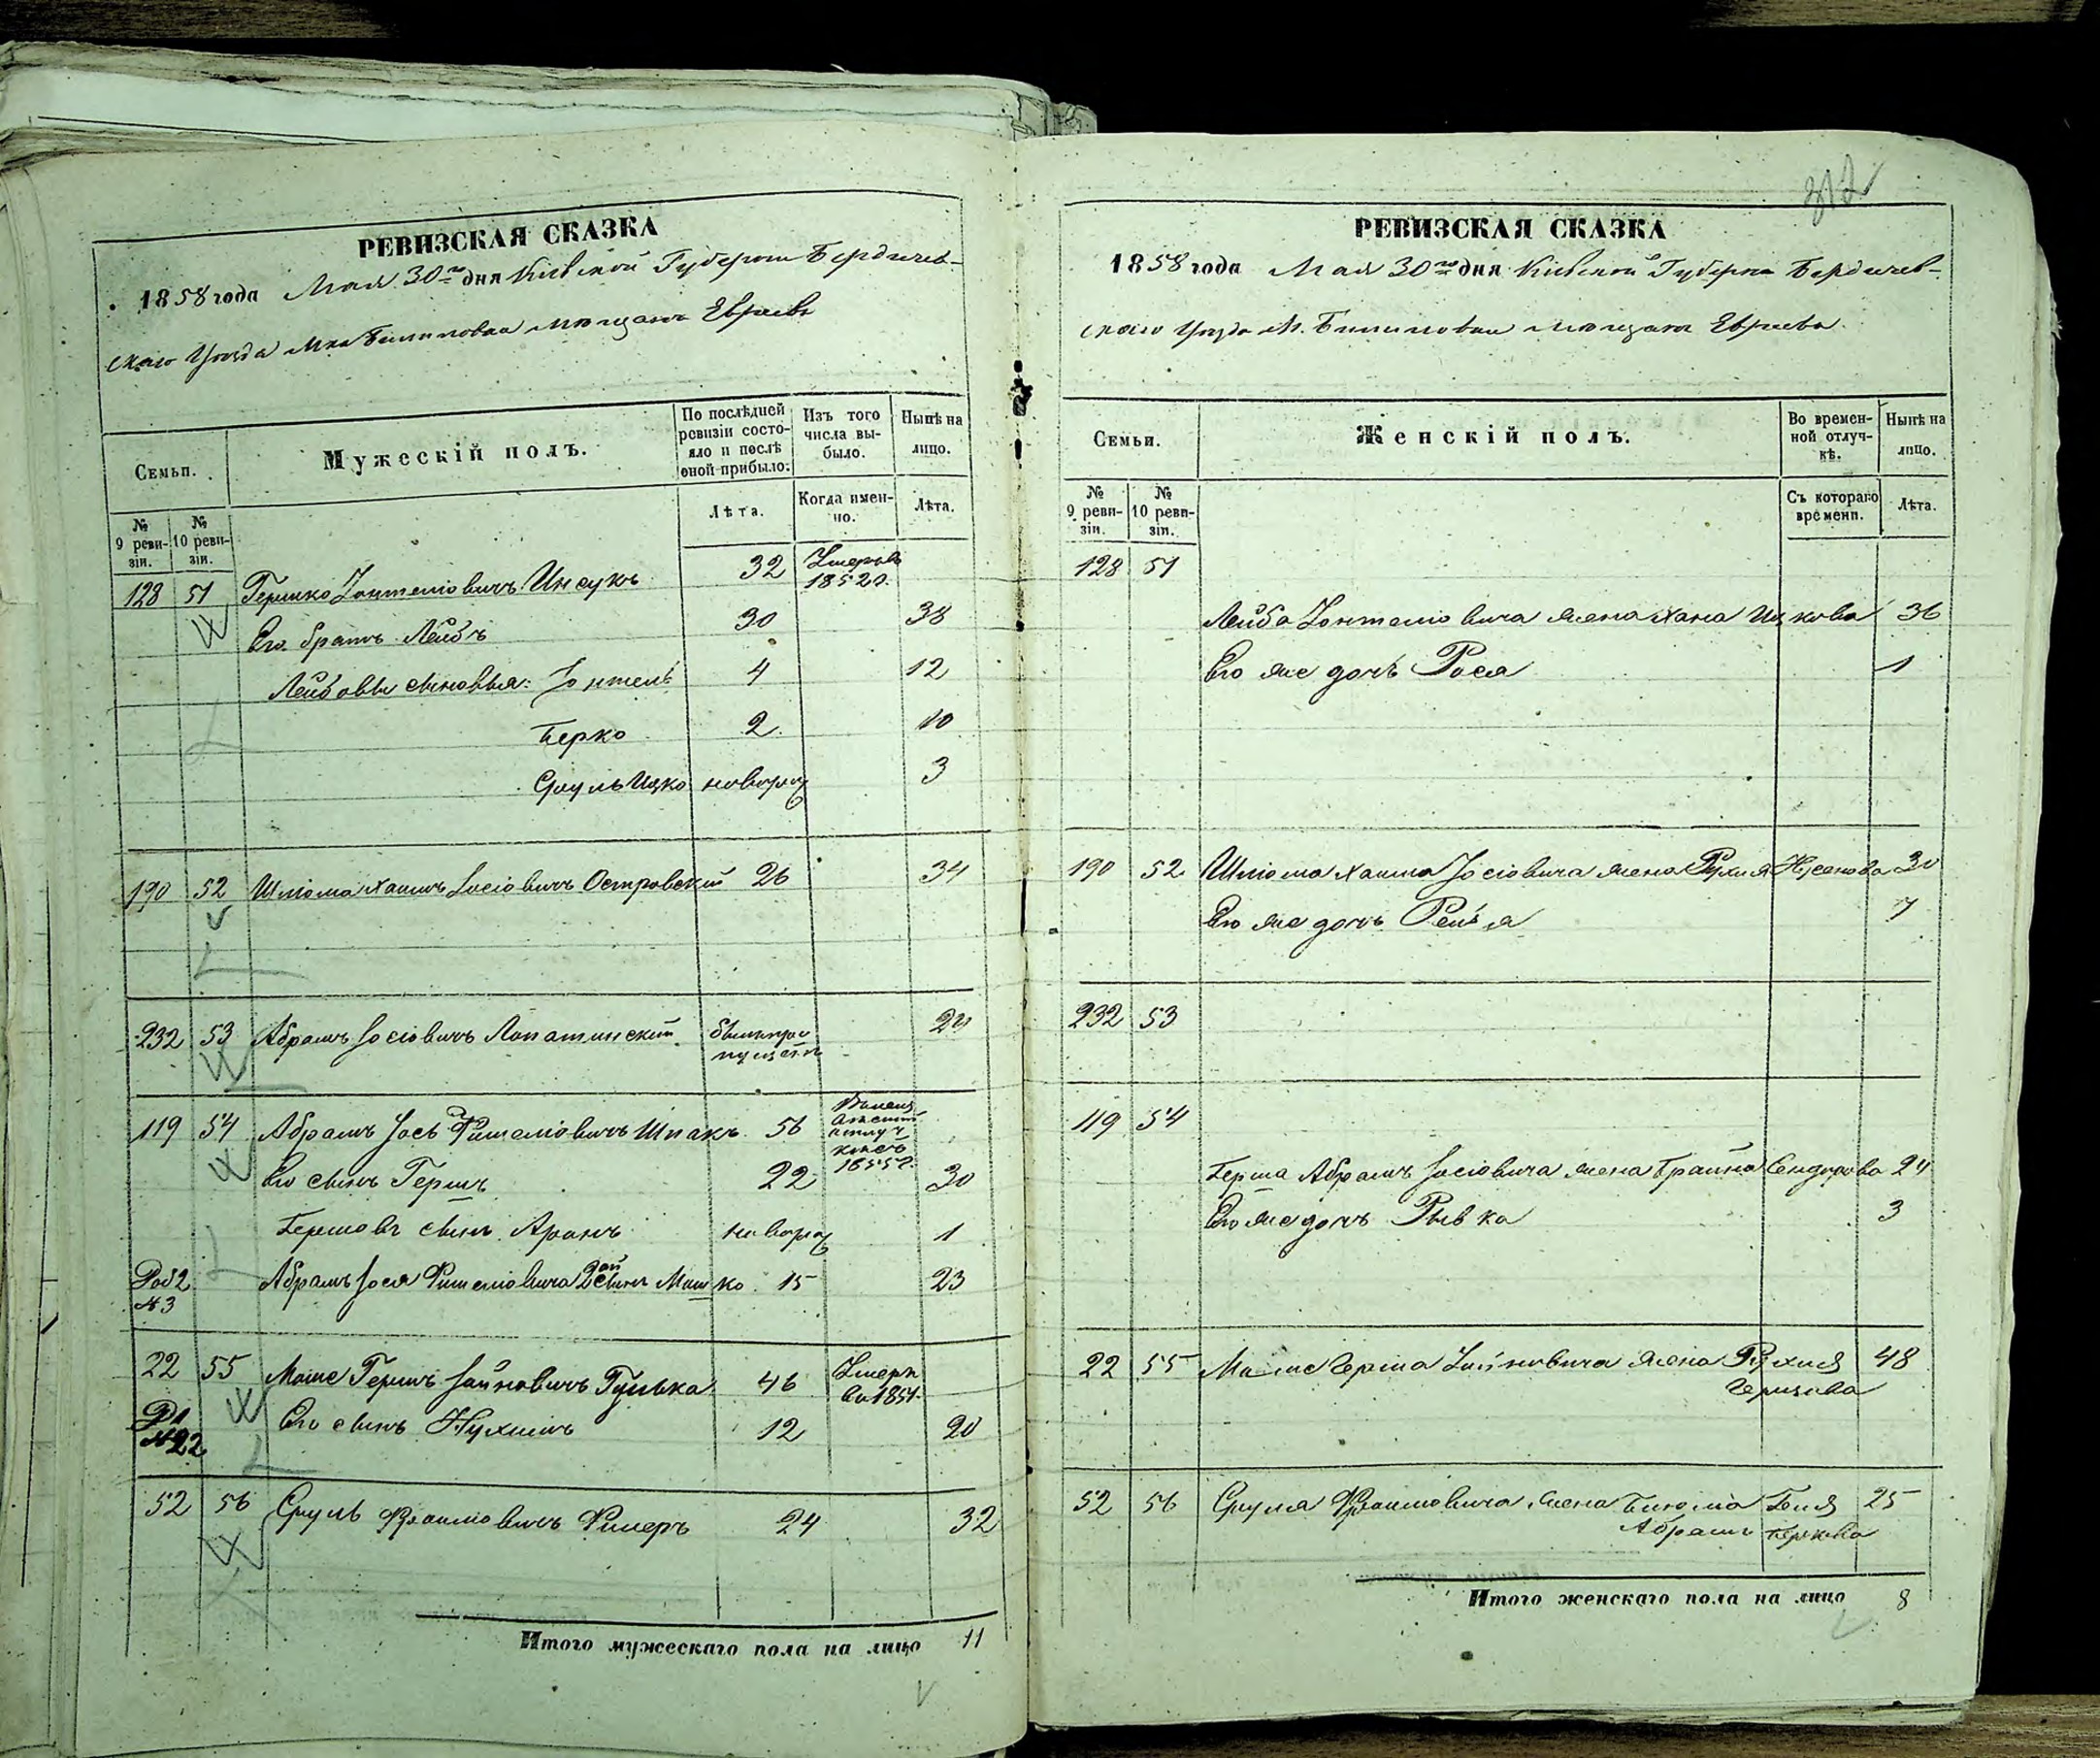 РЕВИЗСКАЯ СКАЗКА
1858 года Мая 30го дня Кіевской Губерніи Бердичев-
скаго Уѣзда Мка Билиловки мѣщанъ Евреевъ
Семьи.
Мужескій полъ.
По послѣдней ревизіи состояло и послѣ оной прибыло:
Изъ того числа выбыло.
Нынѣ на лицо.
№ 9 ревизіи.
№ 10 ревизіи.
Лѣта.
Когда именно.
Лѣта.
128 51 Гершко Іонтеліовичъ 32 Умеръ въ 1852 г.
Его братъ Лейбъ 30 38
Лейбовы сыновья: Іонтель 4 12
Берко 2 10
Сруль Ицко новорож 3
190 52 Шліома Хаимъ Іосіовичъ Островскій 26 34
232 53 Абрамъ Іосіовичъ Лопатинскій былъ пропущенъ
119 54 Абрамъ Іось Фишеліовичъ Шпакъ 56 1855 г.
Его сынъ Гершъ 22 30
Гершовъ сынъ Аронъ новорож 1
Абрамъ Іося Фишеліовича 2ой сынъ Мошко 15 23
22 55 Моше Гершъ Іойновичъ 46 Умеръ въ 1854
№22 Его сынъ Нухимъ 12 20
52 56 Сруль Фроимовичъ Фишеръ 24 32
Итого мужескаго пола на лицо 11
312
РЕВИЗСКАЯ СКАЗКА
1858 года Мая 30го дня Кіевской Губерніи Бердичев-
скаго Уѣзда М. Билиловки мѣщанъ Евреевъ
Семьи.
Женскій полъ.
Во временной отлучкѣ.
Нынѣ на лицо.
№ 9 ревизіи.
№ 10 ревизіи.
Съ котораго времени.
Лѣта.
128 51
Лейба Іонтеліовича жена Хана Ицкова 36
Его же дочь Рося 1
190 52 Шліома Хаима Іосіовича жена Рухля Нусенова 30
Его же дочь Рейзя 7
232 53
119 54
Герша Абрамъ Іосіовича жена Брайна Сендерова 24
Его же дочь Рывка 3
22 55 Моше Герша Іойновича жена Рухля 48
Гершкова
52 56 Сруля Фроимовича жена Бейля 25
Абрамъ Беркова
Итого женскаго пола на лицо 8